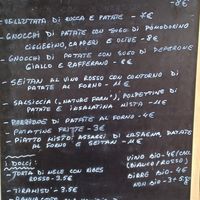 - VELLUTATA DI ZUCCA E PATATE - 7€
- GNOCCHI DI PATATE CON SUGO DI POMODORINO
CILIEGINO, CAPPERI E OLIVE - 8€
- GNOCCHI DI PATATE CON SUGO DI PEPERONE
GIALLO E ZAFFERANO - €
- SEITAN AL VINO ROSSO CON CONTORNO DI
PATATE AL FORNO - 11€
- SALSICCIA ("NATURE FARM"), POLPETTINE DI
PATATE E INSALATINA MISTA - 11€
- PATATE AL FORNO - 4€
- PATATINE FRITTE - 3€
- PIATTO MISTO: ASSAGGI DI LASAGNA, PATATE
AL FORNO E SEITAN - 11€
DOLCI:
- TORTA DI MELE CON RIBES
ROSSO - 3.5€
- TIRAMISU' - 3.5€
VINO BIO - 4€/CAL
(BIANCO/ROSSO)
BIRRE BIO - 4€
NON BIO - 3